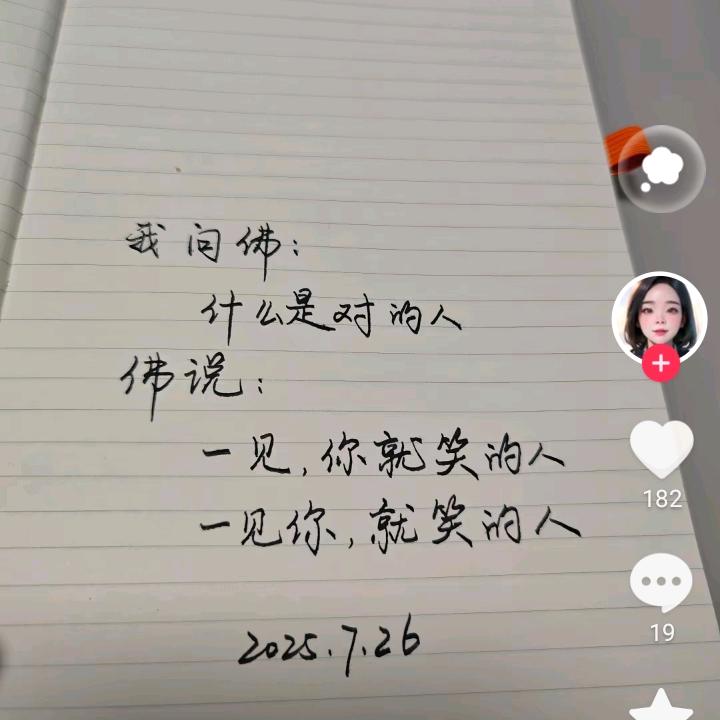 我问佛：
什么是对的人
佛说：
一见，你就笑的人
一见你，就笑的人
2025.7.26
182
19